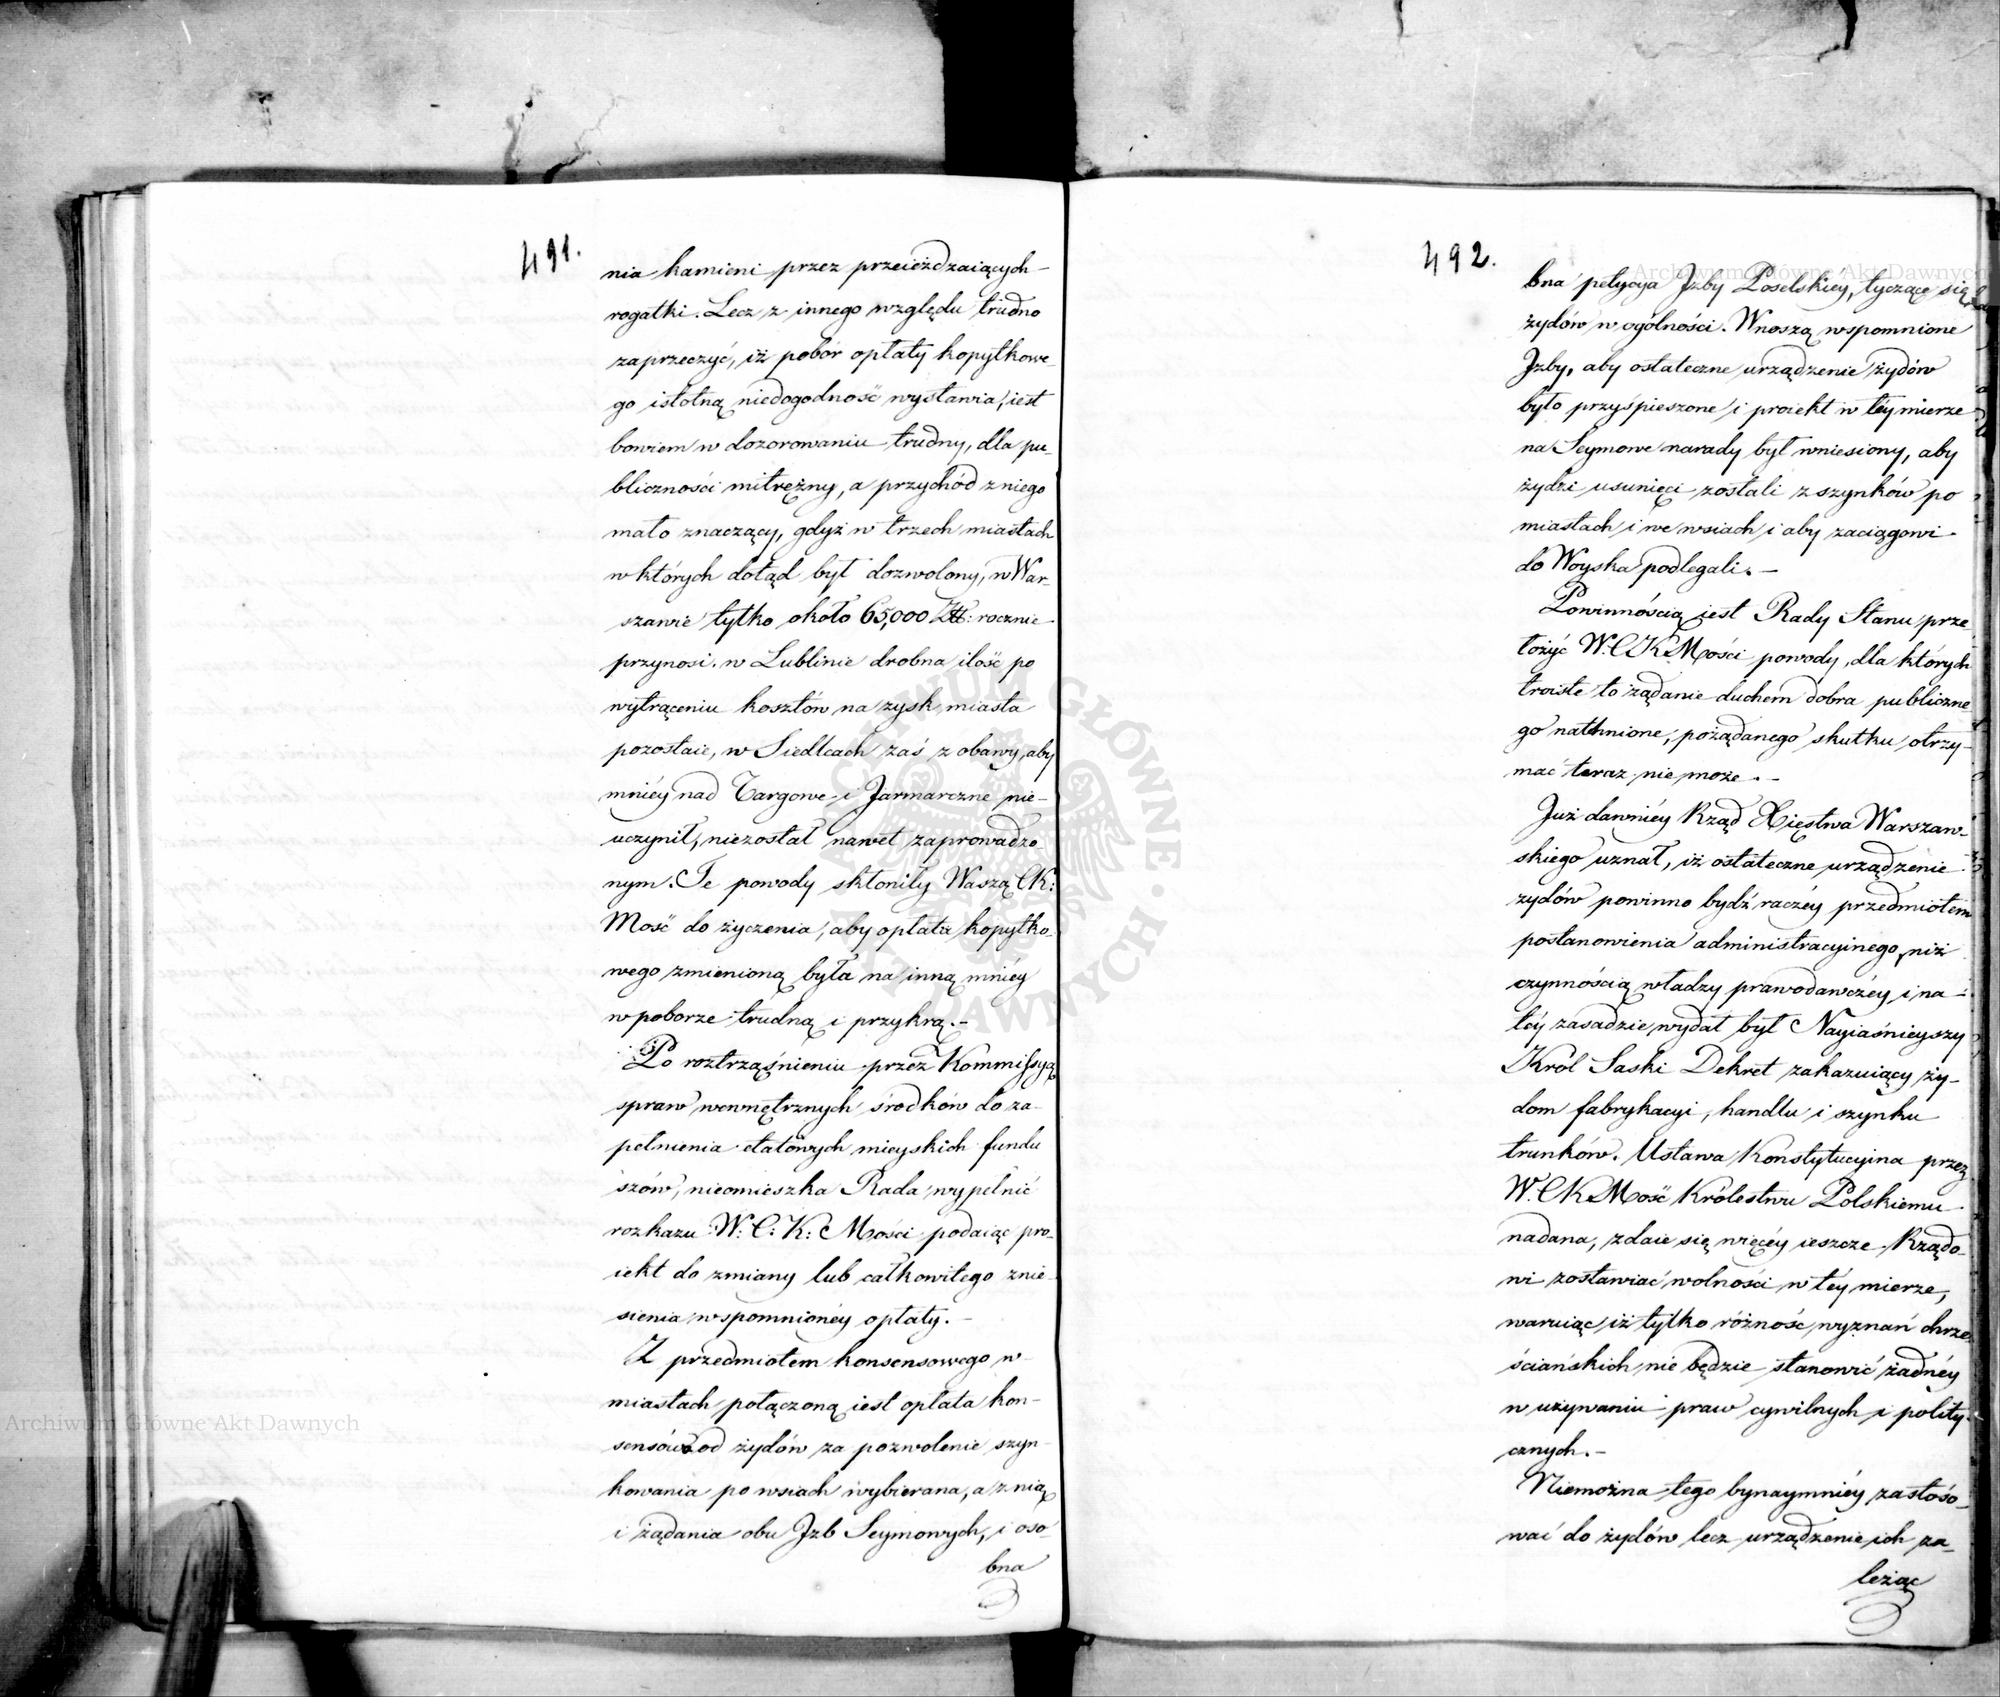 491.
nia kamieni przez przeieżdzaiących
rogatki. Lecz z innego względu trudno
zaprzeczyć, iż pobór opłaty kopytkowe-
go istotną niedogodność wystawia, iest
bowiem w dozorowaniu trudny, dla pu-
bliczności mitrężny, a przychód z niego
mało znaczący, gdyż w trzech miastach
w których dotąd był dozwolony, w War-
szawie tylko około 65,000 Zł: rocznie
przynosi. w Lublinie drobna ilość po
wytrąceniu kosztów na zysk miasta
pozostaie, w Siedlcach zaś z obawy, aby
mniéy nad Targowe i Jarmarczne nie-
uczynił, niezostał nawet zaprowadzo-
nym. Te powody skłoniły Waszą CK:
Mość do życzenia, aby opłata kopytko-
wego zmienioną była na inną mniéy
w poborze trudną i przykrą.-
Po roztrząśnieniu przez Kommissyą
spraw wewnętrznych środków do za-
pełnienia etatowych mieyskich fundu
szów, nieomieszka Rada wypełnić
rozkazu W: C: K: Mości podaiąc pro-
iekt do zmiany lub całkowitego znie-
sienia wspomnionéy opłaty.-
Z przedmiotem konsensowego w
miastach połączoną iest opłata kon-
sensów od żydów za pozwolenie szyn-
kowania po wsiach wybierana, a z nią
i żądania obu Jzb Seymowych, i oso-
bna
492.
bna petycya Jzby Poselskiéy, tycząca się
żydów w ogólności. Wnoszą wspomnione
Jzby, aby ostateczne urządzenie żydów
było przyśpieszone i proiekt w téy mierze
na Seymowe narady był wniesiony, aby
żydzi usunięci zostali z szynków po
miastach i we wsiach i aby zaciągowi
do Woyska podlegali.-
Powinnością iest Rady Stanu prze-
łożyć W. C K Mości powody, dla których
troiste to żądanie duchem dobra publiczne-
go natchnione, pożądanego skutku otrzy-
mać teraz nie może.-
Już dawniéy Rząd Xięstwa Warszaw-
skiego uznał, iż ostateczne urządzenie
żydów powinno bydź raczéy przedmiotem
postanowienia administracyinego, niż
czynnością władzy prawodawczéy, i na
téy zasadzie wydał był Nayiaśnieyszy
Król Saski Dekret zakazuiący ży-
dom fabrykacyi, handlu i szynku
trunków. Ustawa Konstytucyina przez
W. C K Mość Królestwu Polskiemu
nadana, zdaie się więcéy ieszcze Rządo-
wi zostawiać wolności w téy mierze,
waruiąc iż tylko różność wyznań chrze-
ściańskich nie będzie stanowić żadnéy
w używaniu praw cywilnych i polity-
cznych.-
Niemożna tego bynaymniéy zastóso-
wać do żydów lecz urządzenie ich za-
leżąc
Archiwum Główne Akt Dawnych
Archiwum Główne Akt Dawnych
ARCHIWUM GŁÓWNE AKT DAWNYCH